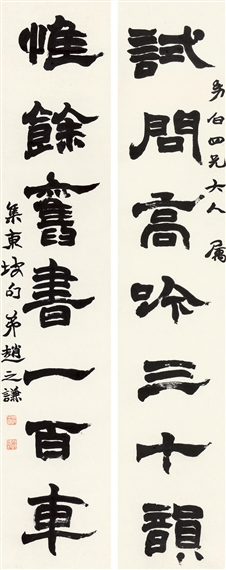 試問高吟三十韻
白四兄大人 屬
惟餘舊書一百車
集東坡句 弟趙之謙